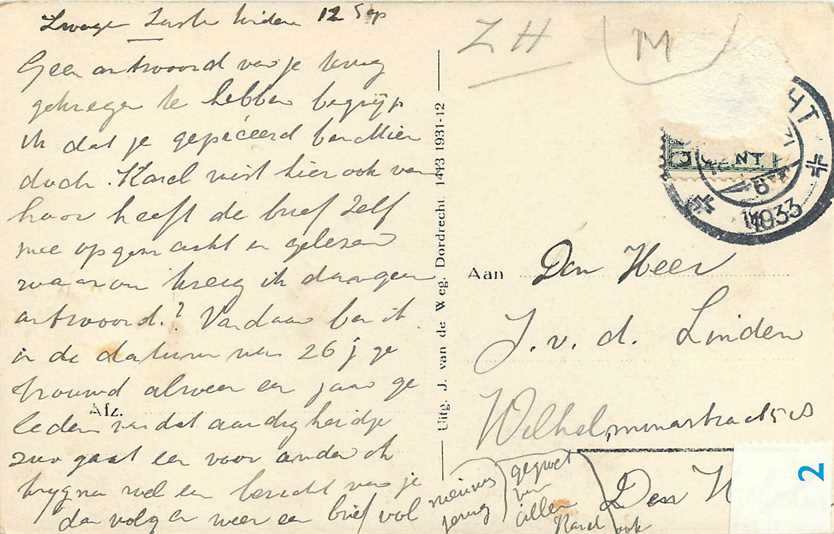 Zwager Zuster Linden 12 Sep
Geen antwoord van je terug
gekregen te hebben begrijp
ik dat je gepiceerd ben Mien
doch Karel wist hier ook van
haar heeft de brief zelf
mee opgemaakt en gelezen
waarom kreeg ik daar geen
antwoord? Vandaar ben ik
in de datum van 26 j ge
trouwd alweer een jaar ge
leden van dat aardigheidje
zoo gaat een voor ander ik
kryg nu wel een bericht van je
dan volg er weer een brief vol nieuws
terug
gegroet
van
allen
Karel
ook
Afz.
Uitg. J. van de Weg. Dordrecht. 1443 1931-12
ZH
M
CENT
1933
Aan Den Heer
J. v. d. Linden
Wilhelminastraat 518
Den H
2